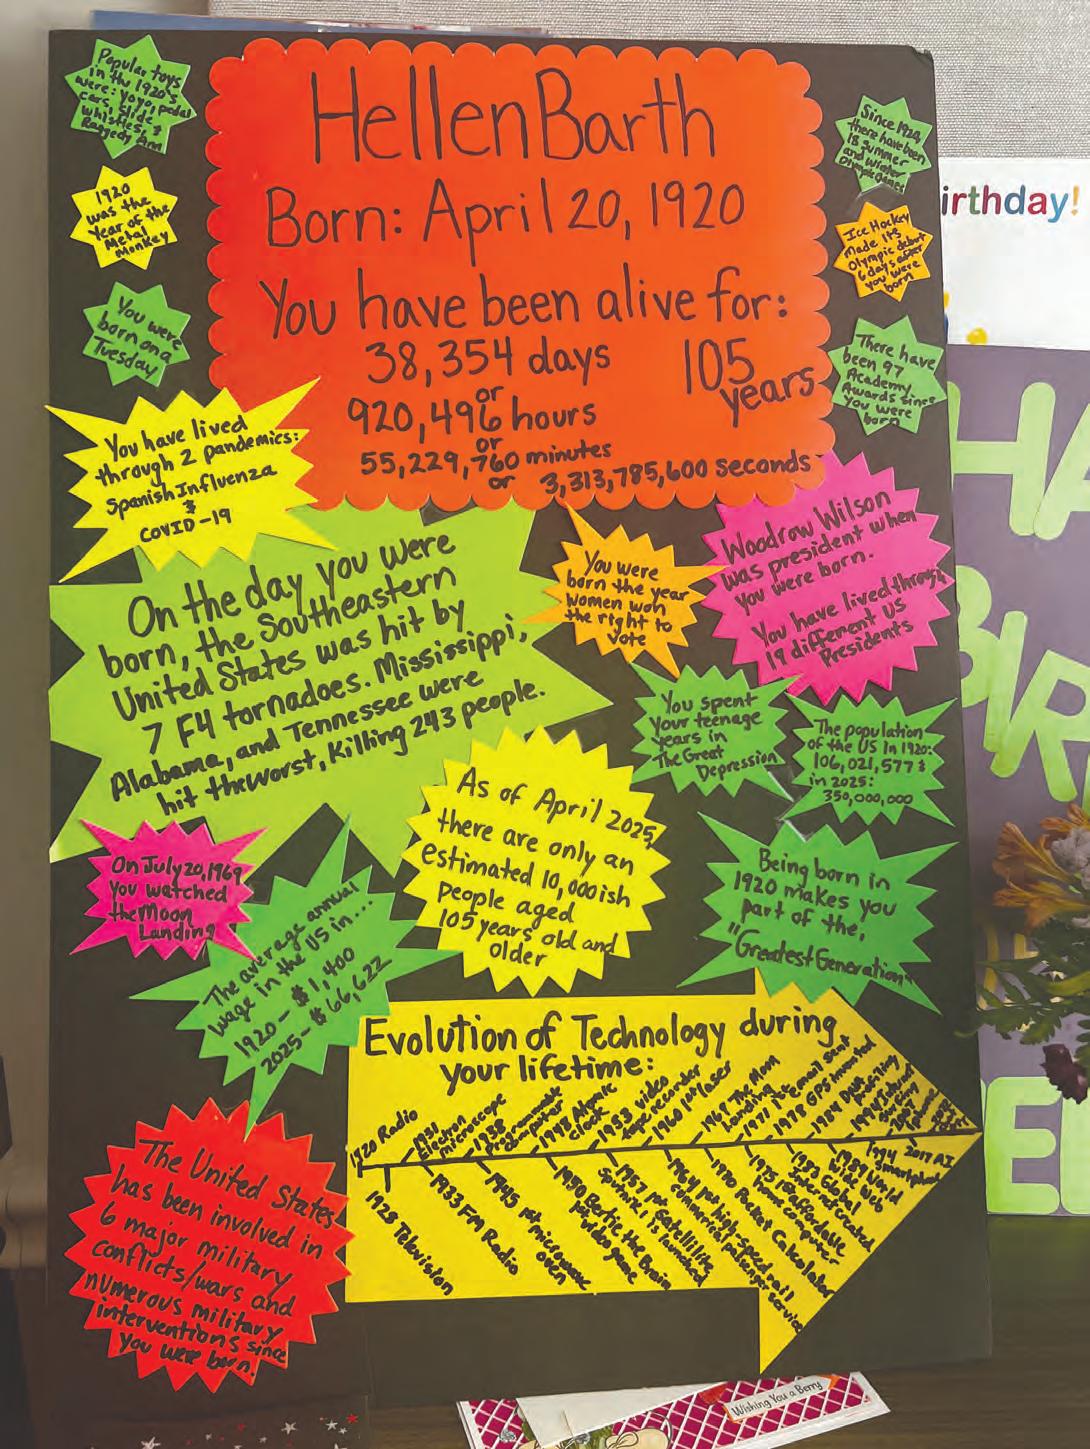 Popular toys
in the 1920's
were: Yoyo, pedal
cars, slide
whistles, &
Raggedy Ann
1920
was the
Year of the
Metal
Monkey
You were
born on a
Tuesday
Hellen Barth
Born: April 20, 1920
You have been alive for:
38,354 days
or
920,496 hours
or
55,229,760 minutes
or 3,313,785,600 seconds
105
years
Since 1924
there have been
18 summer
and winter
Olympic Games
Ice Hockey
Made its
Olympic debut
6 days after
you were
born
There have
been 97
Academy
Awards since
you were
born
irthday!
HA
BIR
You have lived
through 2 pandemics:
Spanish Influenza
&
COVID-19
On the day you were
born, the Southeastern
United States was hit by
7 F4 tornadoes. Mississippi,
Alabama, and Tennessee were
hit the worst, killing 243 people.
You were
born the year
women won
the right to
vote
Woodrow Wilson
was president when
you were born.
You have lived through
19 different US
Presidents
You spent
your teenage
years in
The Great
Depression
The population
of the US in 1920:
106,021,577 &
in 2025:
350,000,000
As of April 2025,
there are only an
estimated 10,000ish
people aged
105 years old and
older
On July 20, 1969
you watched
the Moon
Landing
The average annual
wage in the US in...
1920 - $1,400
2025 - $66,622
Being born in
1920 makes you
part of the,
"Greatest Generation"
Evolution of Technology during
your lifetime:
1920 Radio
1931
Electron
microscope
1938
Programmable
computer
1948 Atomic
clock
1953 video
tape recorder
1960 1st laser
1969 The Moon
Landing
1971 1st email sent
1978 GPS invented
1984 DNA
profiling
1994
Smartphone
2017 AI
1928 Television
1933 FM Radio
1945 1st microwave
oven
1950 Bertie the Brain
1st video game
1957 1st satellite,
Sputnik 1 is launched
1964 1st high-speed rail
commercial passenger service
1970 Pocket Calculator
1975 1st affordable
home computer
1983 Global
Internet created
1989 World
Wide Web
The United States
has been involved in
6 major military
conflicts/wars and
numerous military
interventions since
you were born.
Wishing You a Berry